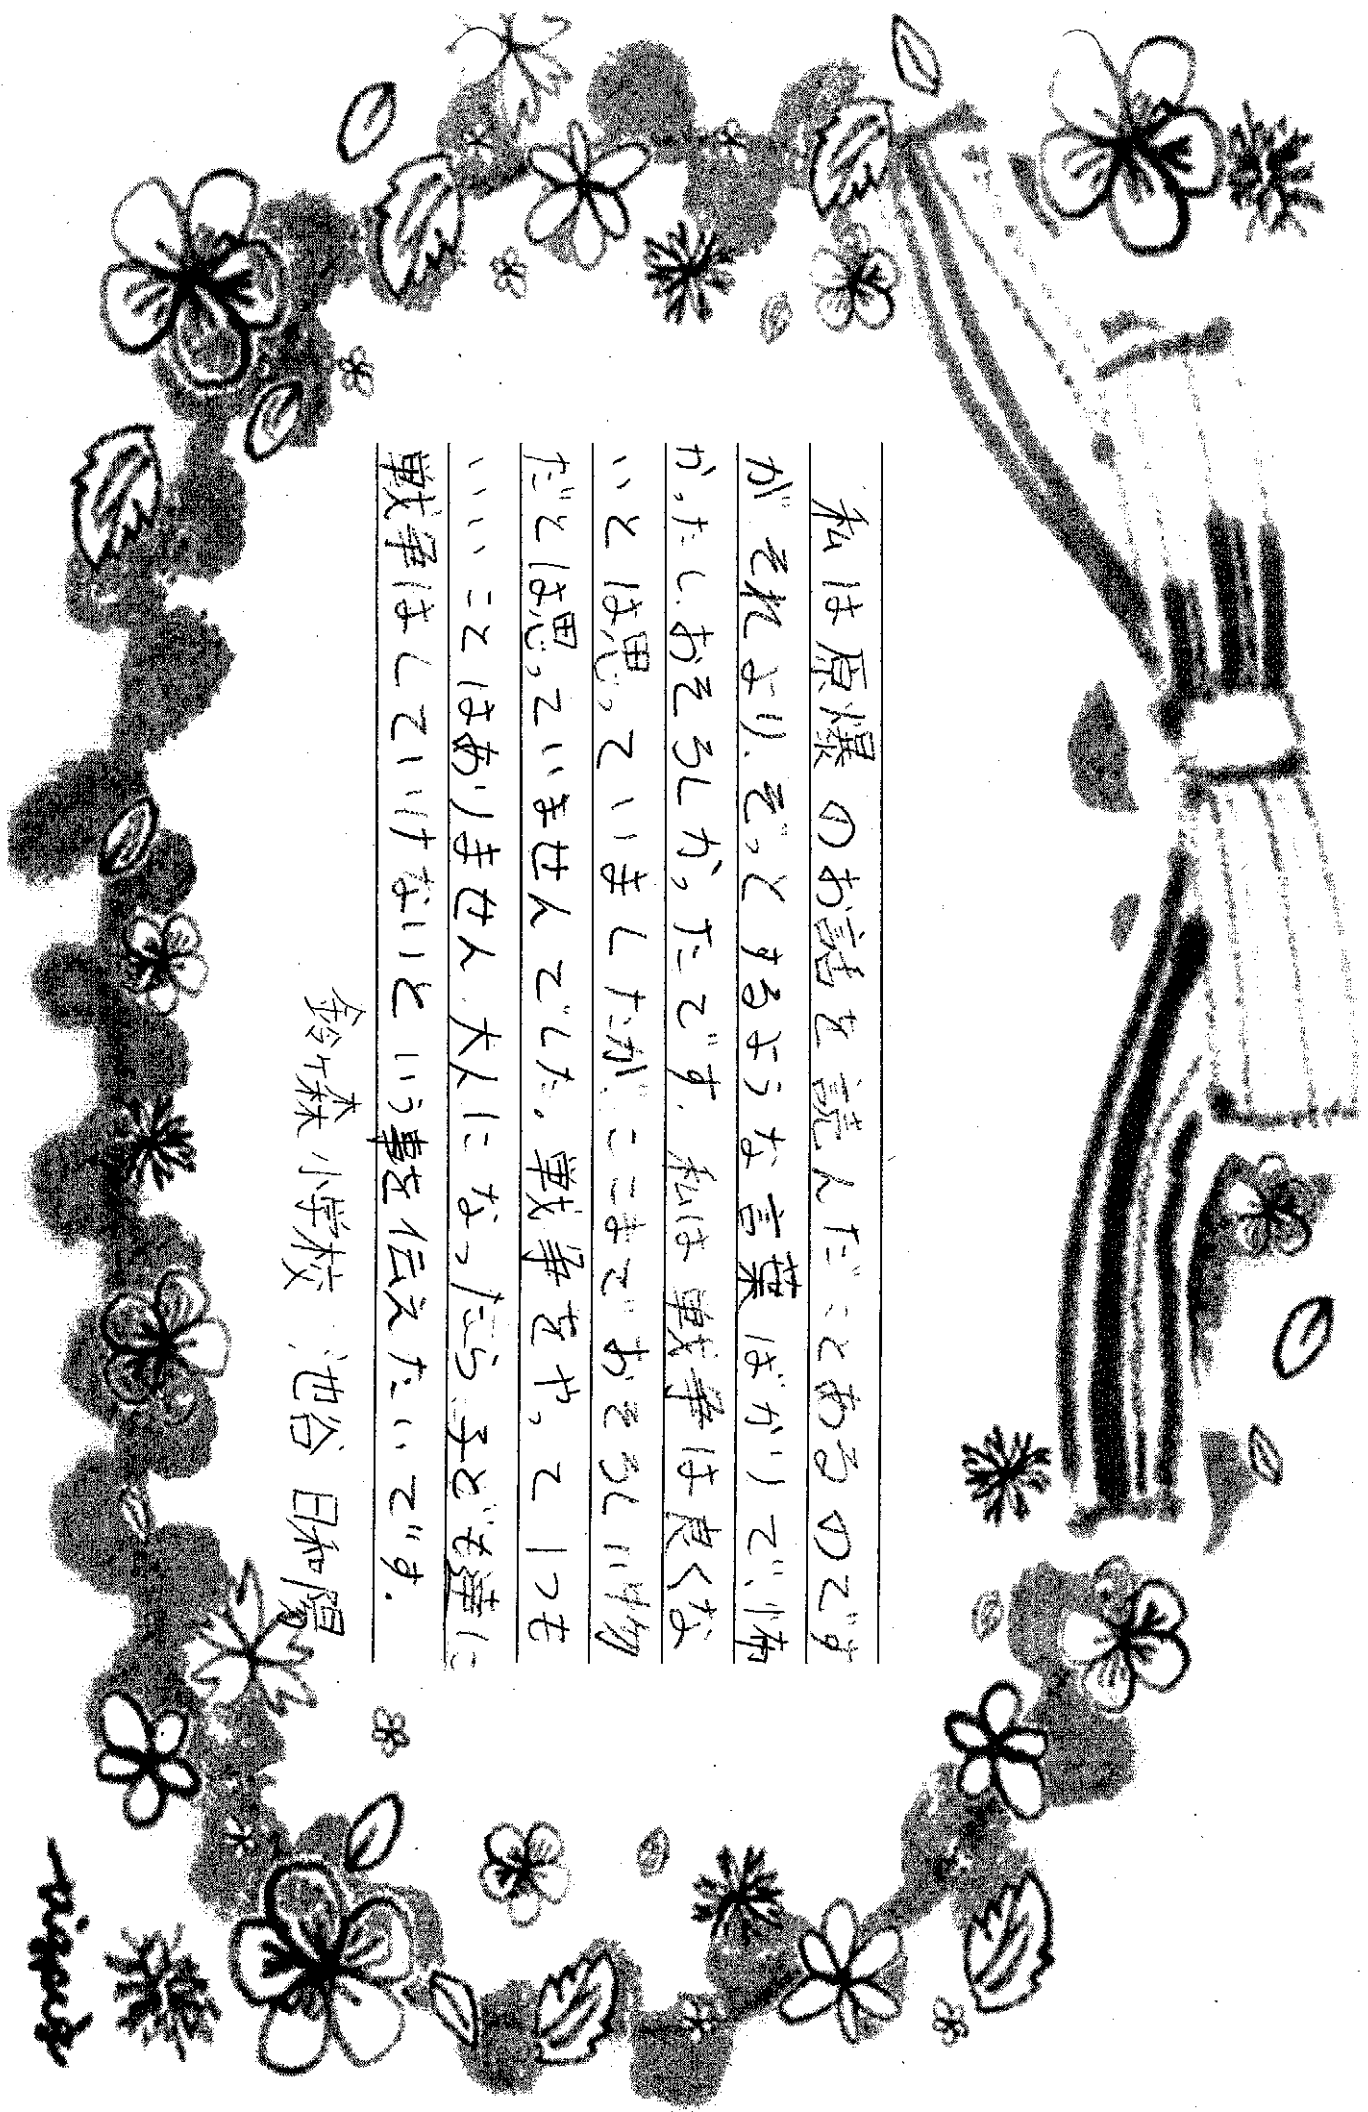 私は原爆のお話を読んだことあるのです
が、それより、ぞっとするような言葉ばかりで、怖
かったし、おそろしかったです。私は戦争は良くな
いとは思っていましたが、ここまでおそろしい物
だとは思っていませんでした。戦争をやって1つも
いいことはありません。大人になったら、子ども達に
戦争はしていけないという事を伝えたいです。
鈴ヶ森小学校 池谷 日和陽